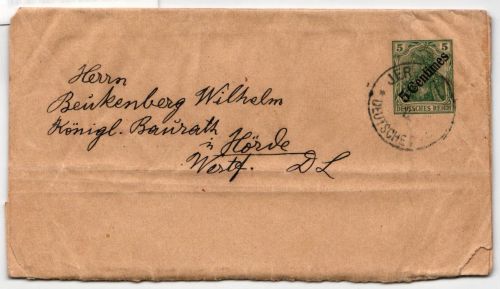 Herrn
Beukenberg Wilhelm
Königl. Baurath
in Hörde
Westf. DL
5 5
5 Centimes
DEUTSCHES REICH
JER
DEUTSCHE